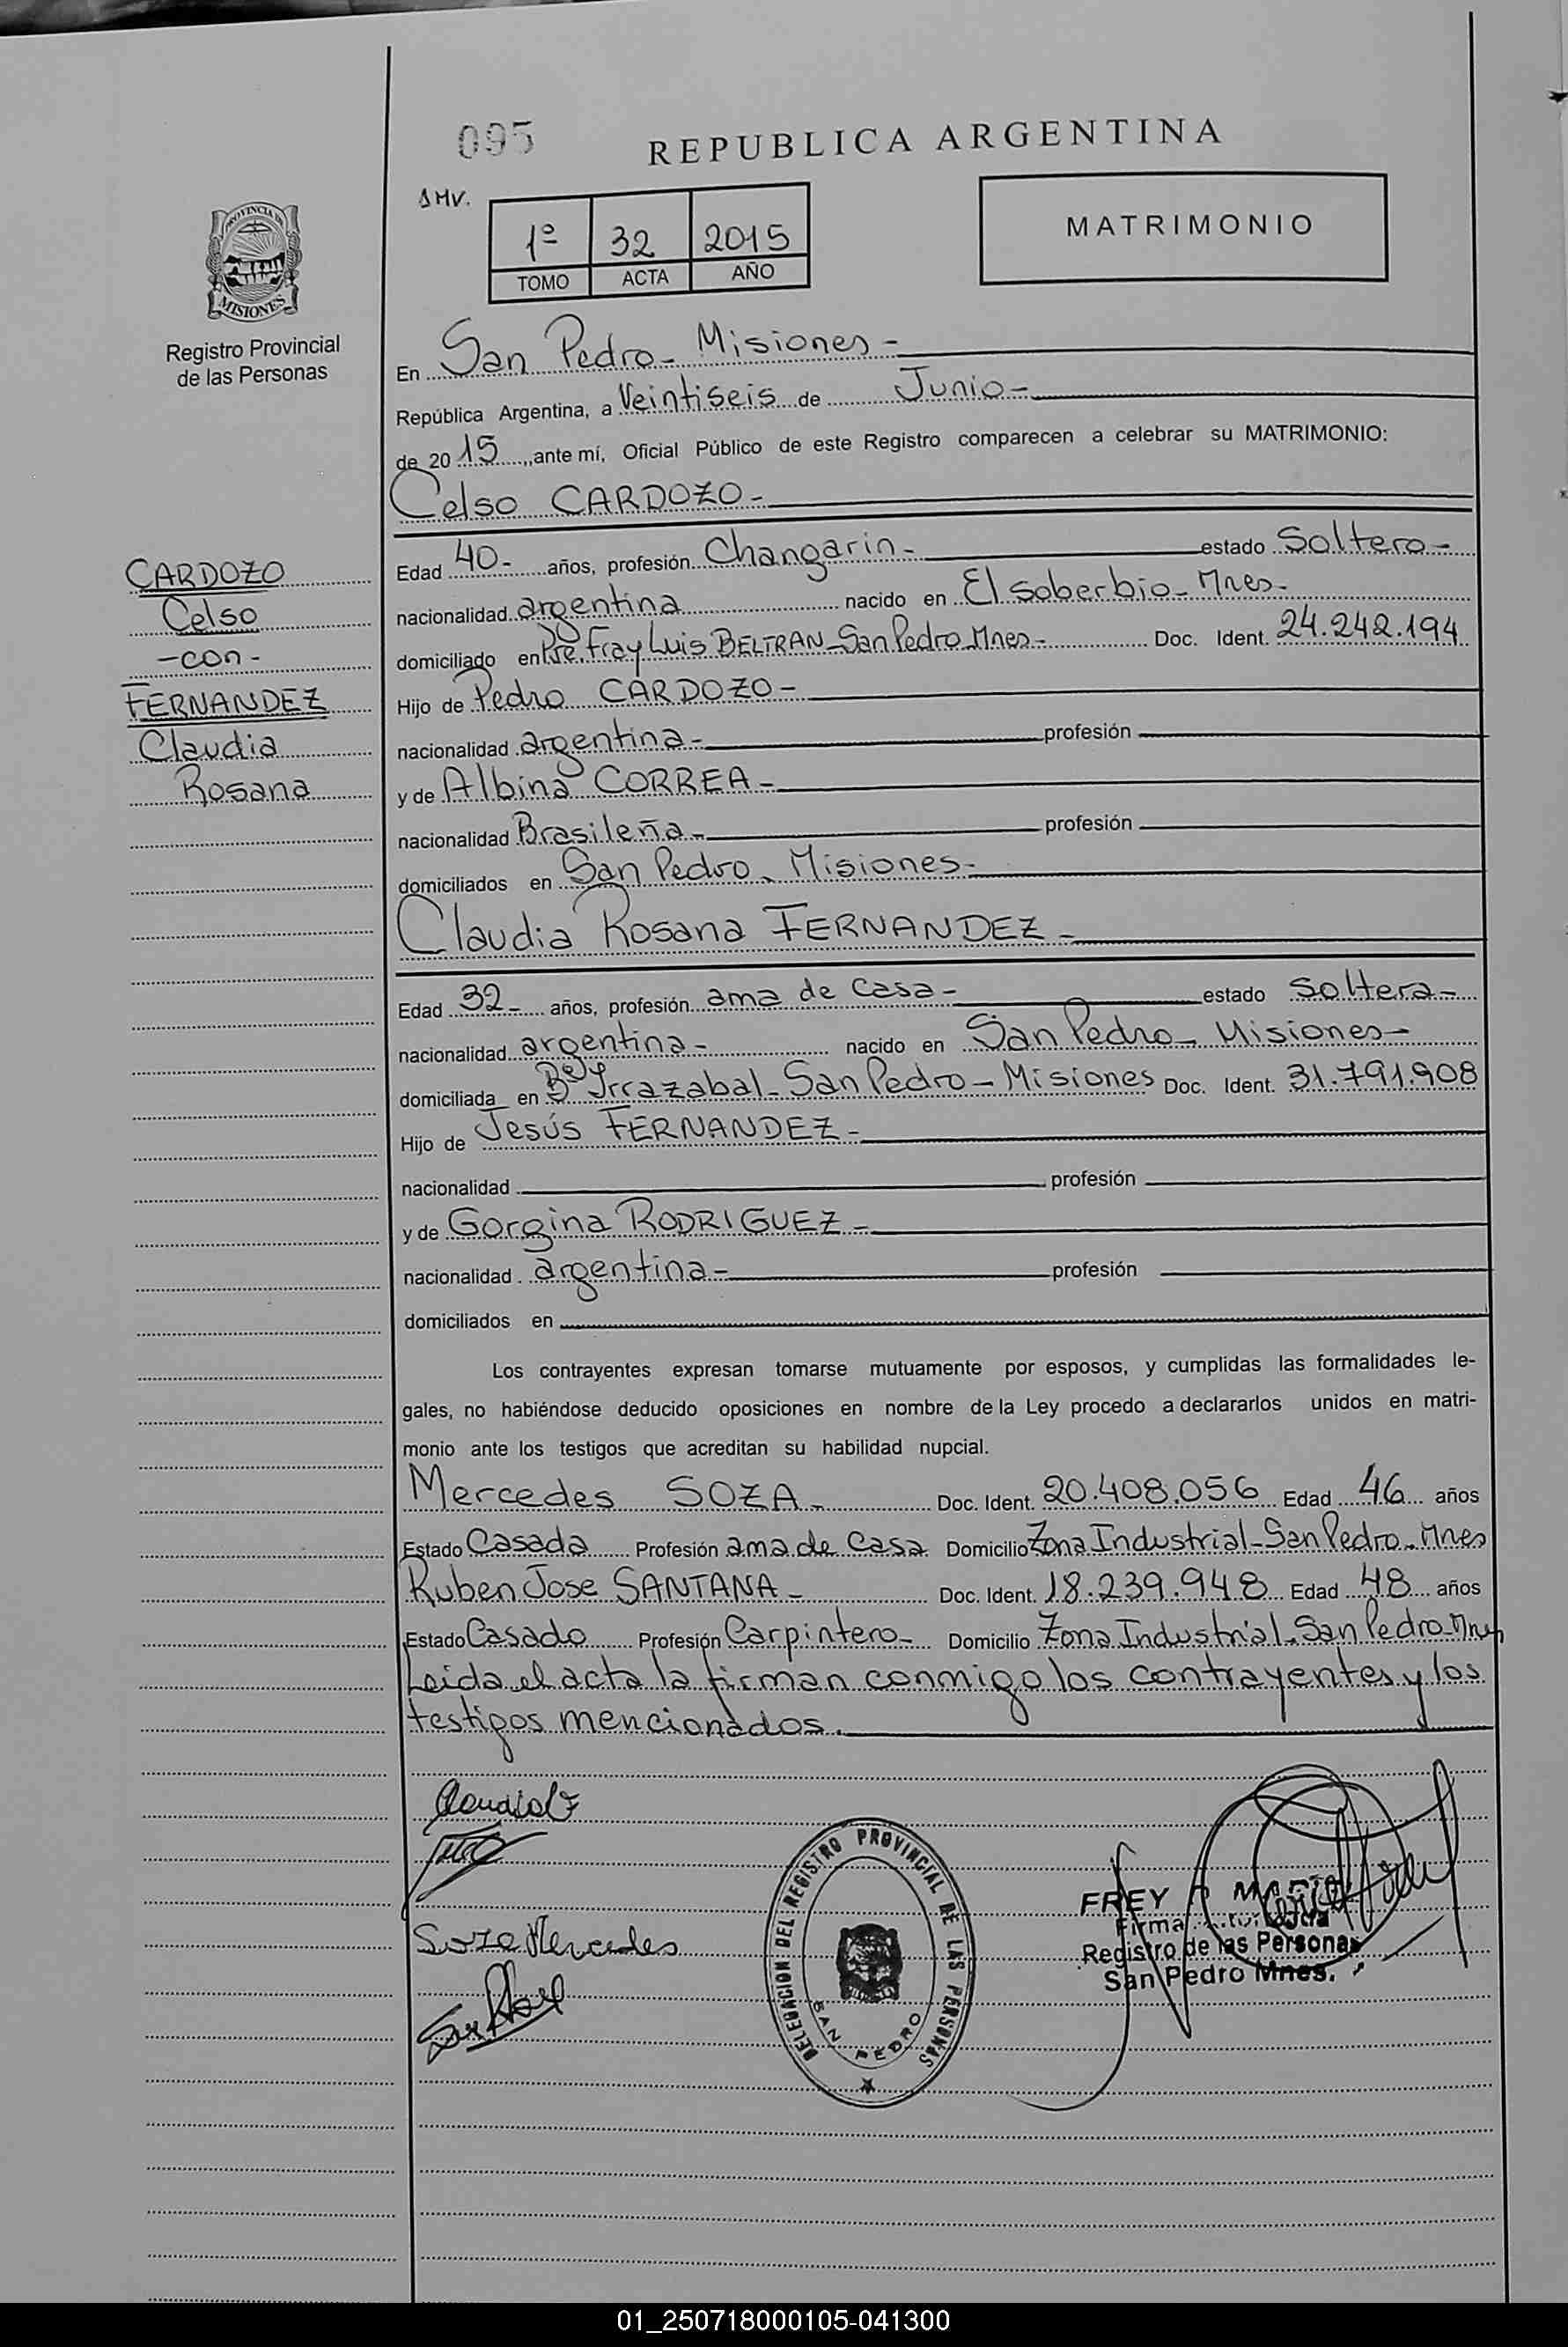 095
REPUBLICA ARGENTINA
MATRIMONIO
1º 32 2015
TOMO ACTA AÑO
PROVINCIA DE
MISIONES
Registro Provincial
de las Personas
En San Pedro - Misiones -
República Argentina, a Veintiseis de Junio -
de 20 15, ante mí, Oficial Público de este Registro comparecen a celebrar su MATRIMONIO:
Celso CARDOZO -
CARDOZO
Celso
- con -
FERNANDEZ
Claudia
Rosana
Edad 40 - años, profesión Changarin - estado Soltero -
nacionalidad argentina nacido en El soberbio - Mnes -
domiciliado en Fray Luis BELTRAN - San Pedro - Mnes - Doc. Ident. 24.242.194
Hijo de Pedro CARDOZO -
nacionalidad argentina - profesión
y de Albina CORREA -
nacionalidad Brasileña - profesión
domiciliados en San Pedro - Misiones -
Claudia Rosana FERNANDEZ -
Edad 32 - años, profesión ama de casa - estado soltera -
nacionalidad argentina - nacido en San Pedro - Misiones -
domiciliada en Bº Irrazabal - San Pedro - Misiones Doc. Ident. 31.791.908
Hijo de Jesús FERNANDEZ -
nacionalidad profesión
y de Gorgina RODRIGUEZ -
nacionalidad argentina - profesión
domiciliados en
Los contrayentes expresan tomarse mutuamente por esposos, y cumplidas las formalidades le-
gales, no habiéndose deducido oposiciones en nombre de la Ley procedo a declararlos unidos en matri-
monio ante los testigos que acreditan su habilidad nupcial.
Mercedes SOZA - Doc. Ident. 20.408.056 Edad 46 años
Estado Casada Profesión ama de casa Domicilio Zona Industrial - San Pedro - Mnes
Ruben Jose SANTANA - Doc. Ident. 18.239.948 Edad 48 años
Estado Casado Profesión Carpintero - Domicilio Zona Industrial - San Pedro - Mnes
Leida el acta la firman conmigo los contrayentes y los
testigos mencionados.
Soza Mercedes
DELEGACION DEL REGISTRO PROVINCIAL DE LAS PERSONAS
SAN PEDRO
FREY
Firma
Registro de las Personas
San Pedro Mnes.
01_250718000105-041300